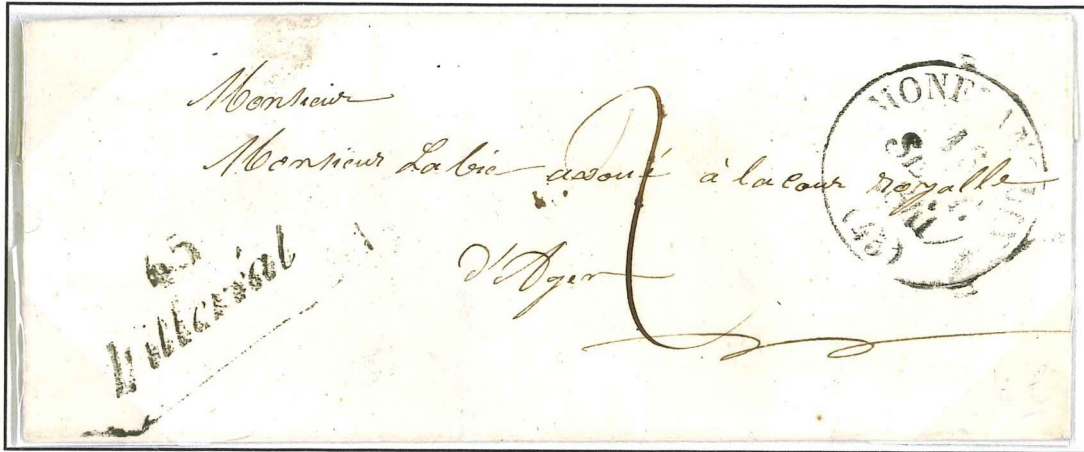 Monsieur
Monsieur Labie avoué à la cour royalle
d'Agen
2
45
Villeréal
MONFLANQUIN
(45)